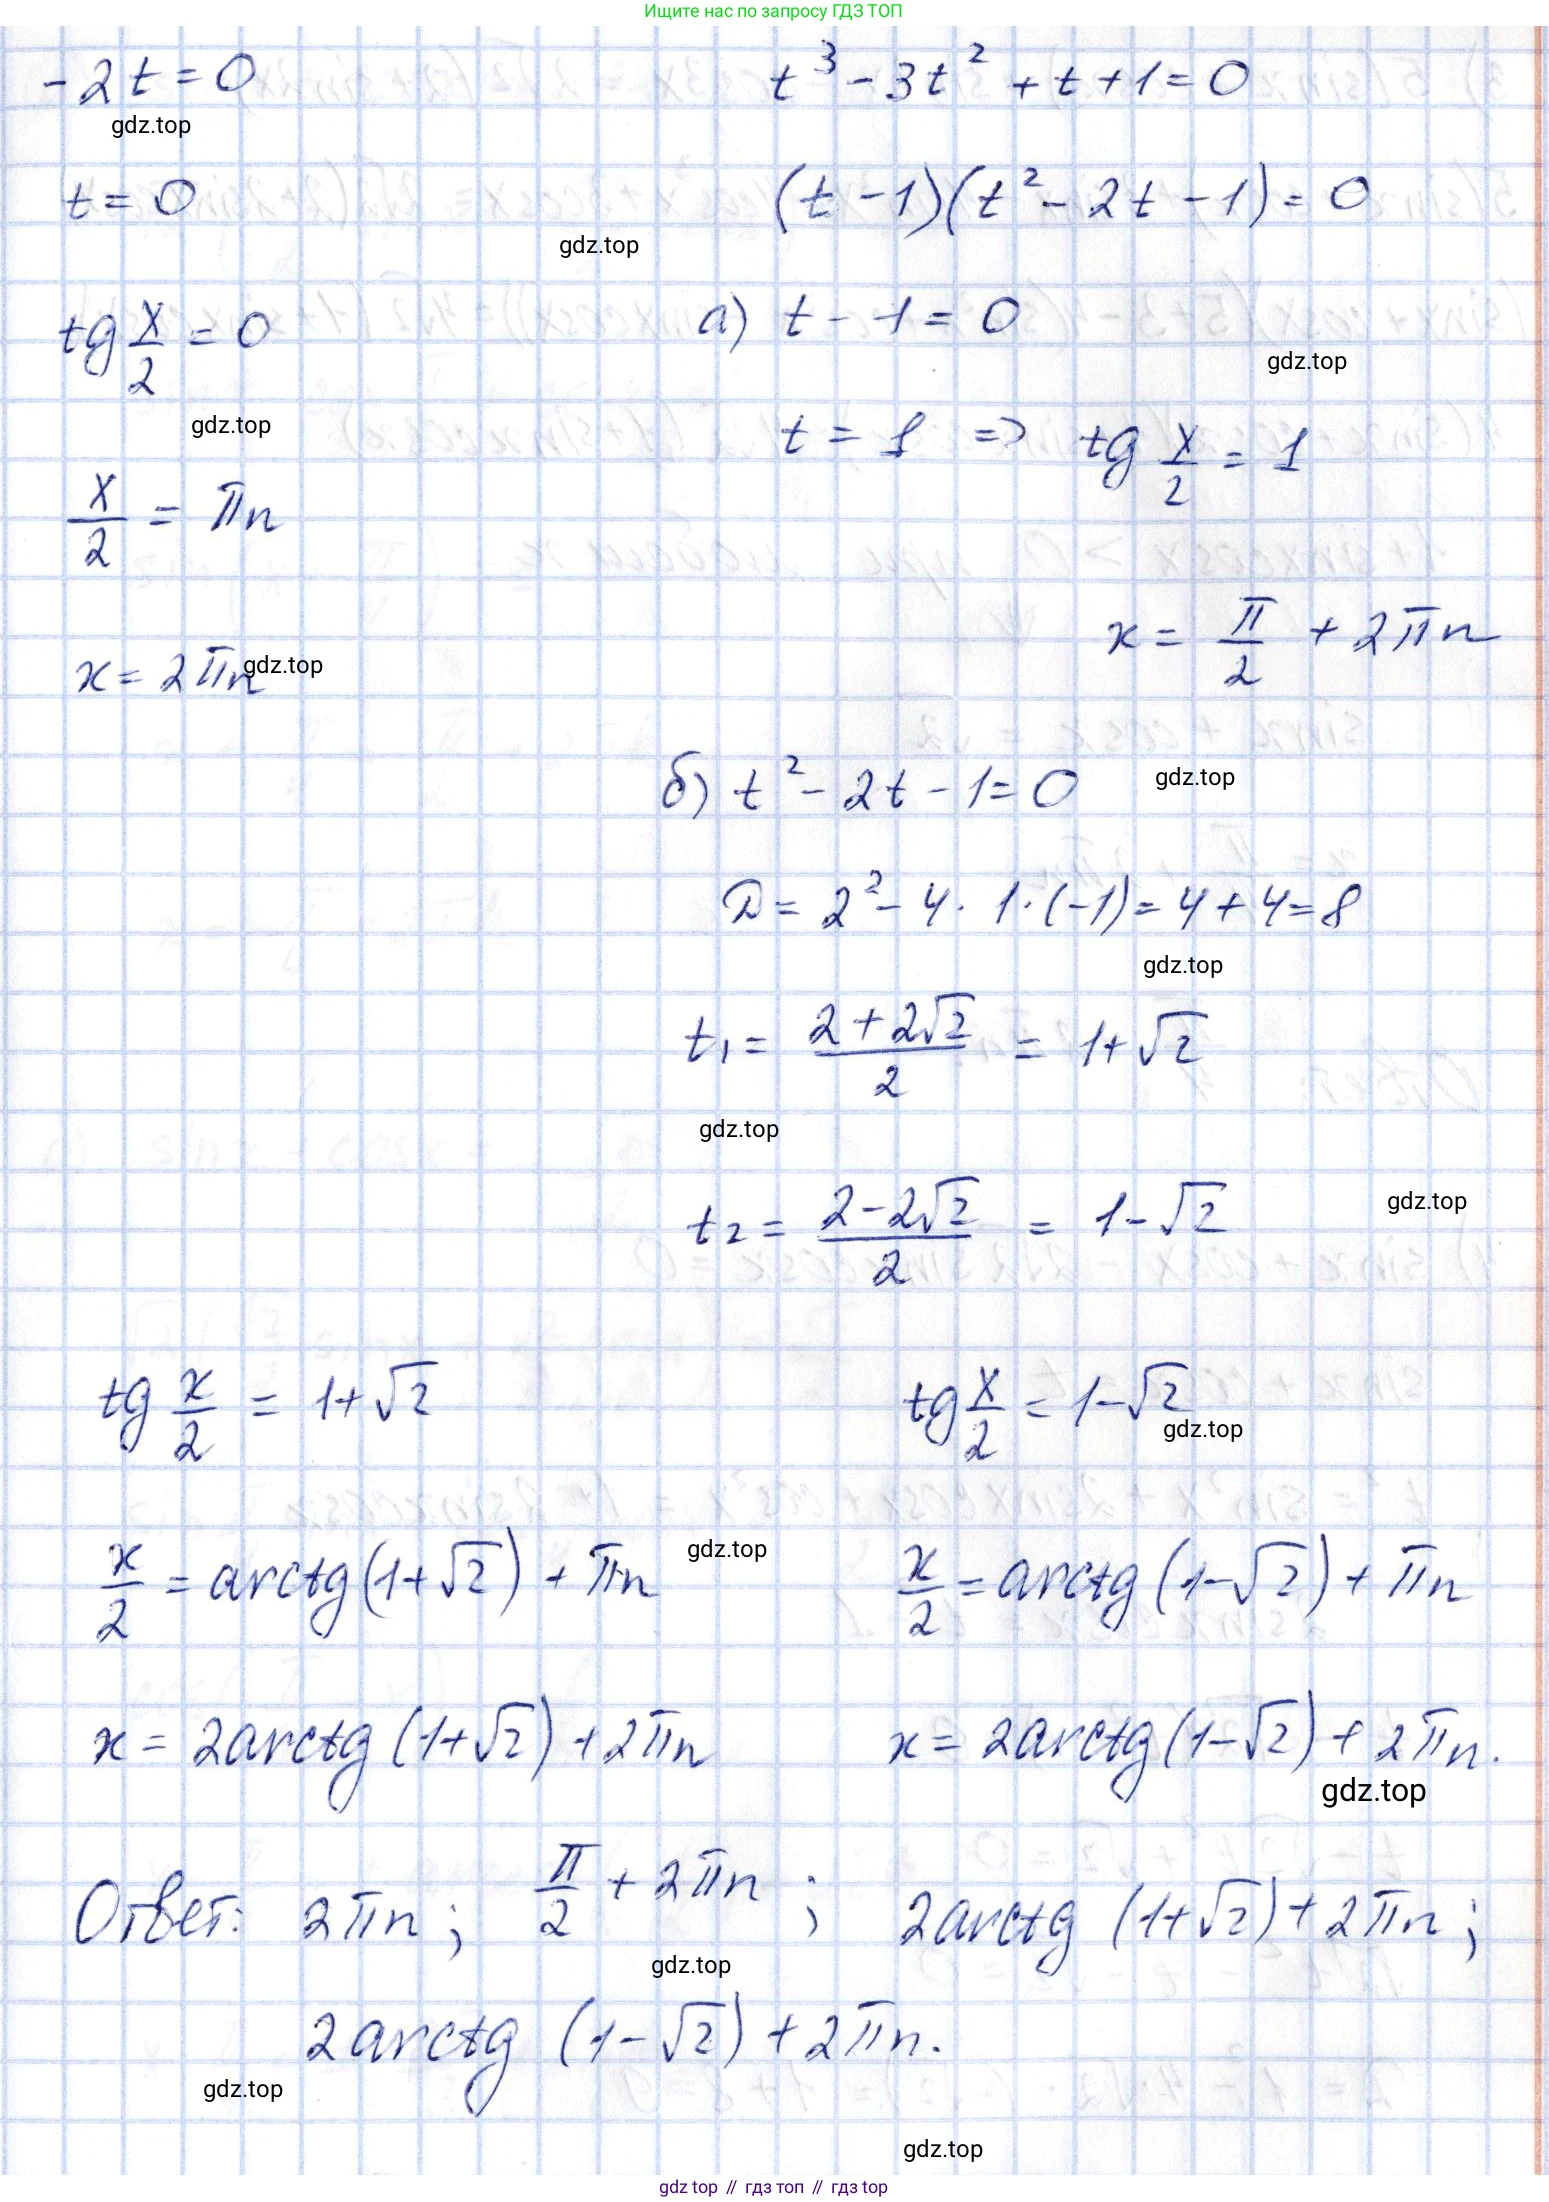 Ищите нас по запросу ГДЗ ТОП
-2t = 0    t³ - 3t² + t + 1 = 0
gdz.top
t = 0    (t - 1)(t² - 2t - 1) = 0
gdz.top
tg x/2 = 0    а) t - 1 = 0
gdz.top
gdz.top
t = 1 => tg x/2 = 1
x/2 = πn
x = π/2 + 2πn
x = 2πn
gdz.top
б) t² - 2t - 1 = 0
gdz.top
D = 2² - 4 · 1 · (-1) = 4 + 4 = 8
gdz.top
t₁ = (2 + 2√2)/2 = 1 + √2
gdz.top
t₂ = (2 - 2√2)/2 = 1 - √2
gdz.top
tg x/2 = 1 + √2    tg x/2 = 1 - √2
gdz.top
x/2 = arctg(1 + √2) + πn    x/2 = arctg(1 - √2) + πn
gdz.top
x = 2arctg(1 + √2) + 2πn    x = 2arctg(1 - √2) + 2πn.
gdz.top
Ответ: 2πn; π/2 + 2πn; 2arctg(1 + √2) + 2πn;
gdz.top
2arctg(1 - √2) + 2πn.
gdz.top
gdz.top
gdz top // гдз топ // гдз top